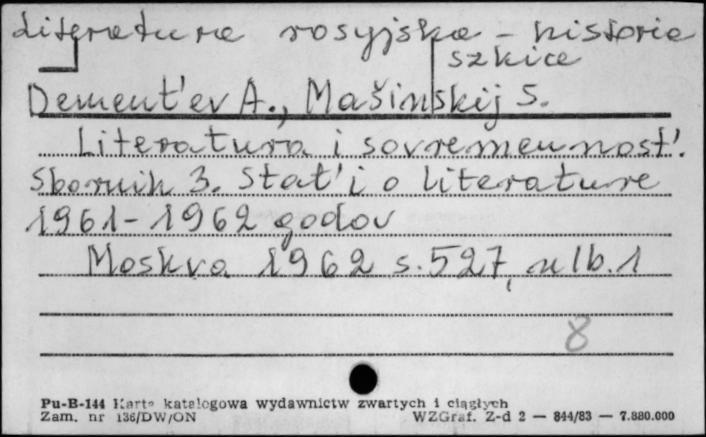 Literatura rosyjska - historia
szkice
Dement'ev A., Mašinskij S.
Literatura i sovremennost'.
Sbornik 3. Stat'i o literature
1961-1962 godov
Moskva 1962 s. 527, nlb. 1
8
Pu-B-144 Karta katalogowa wydawnictw zwartych i ciągłych
Zam. nr 136/DW/ON WZGraf. Z-d 2 — 844/83 — 7.880.000